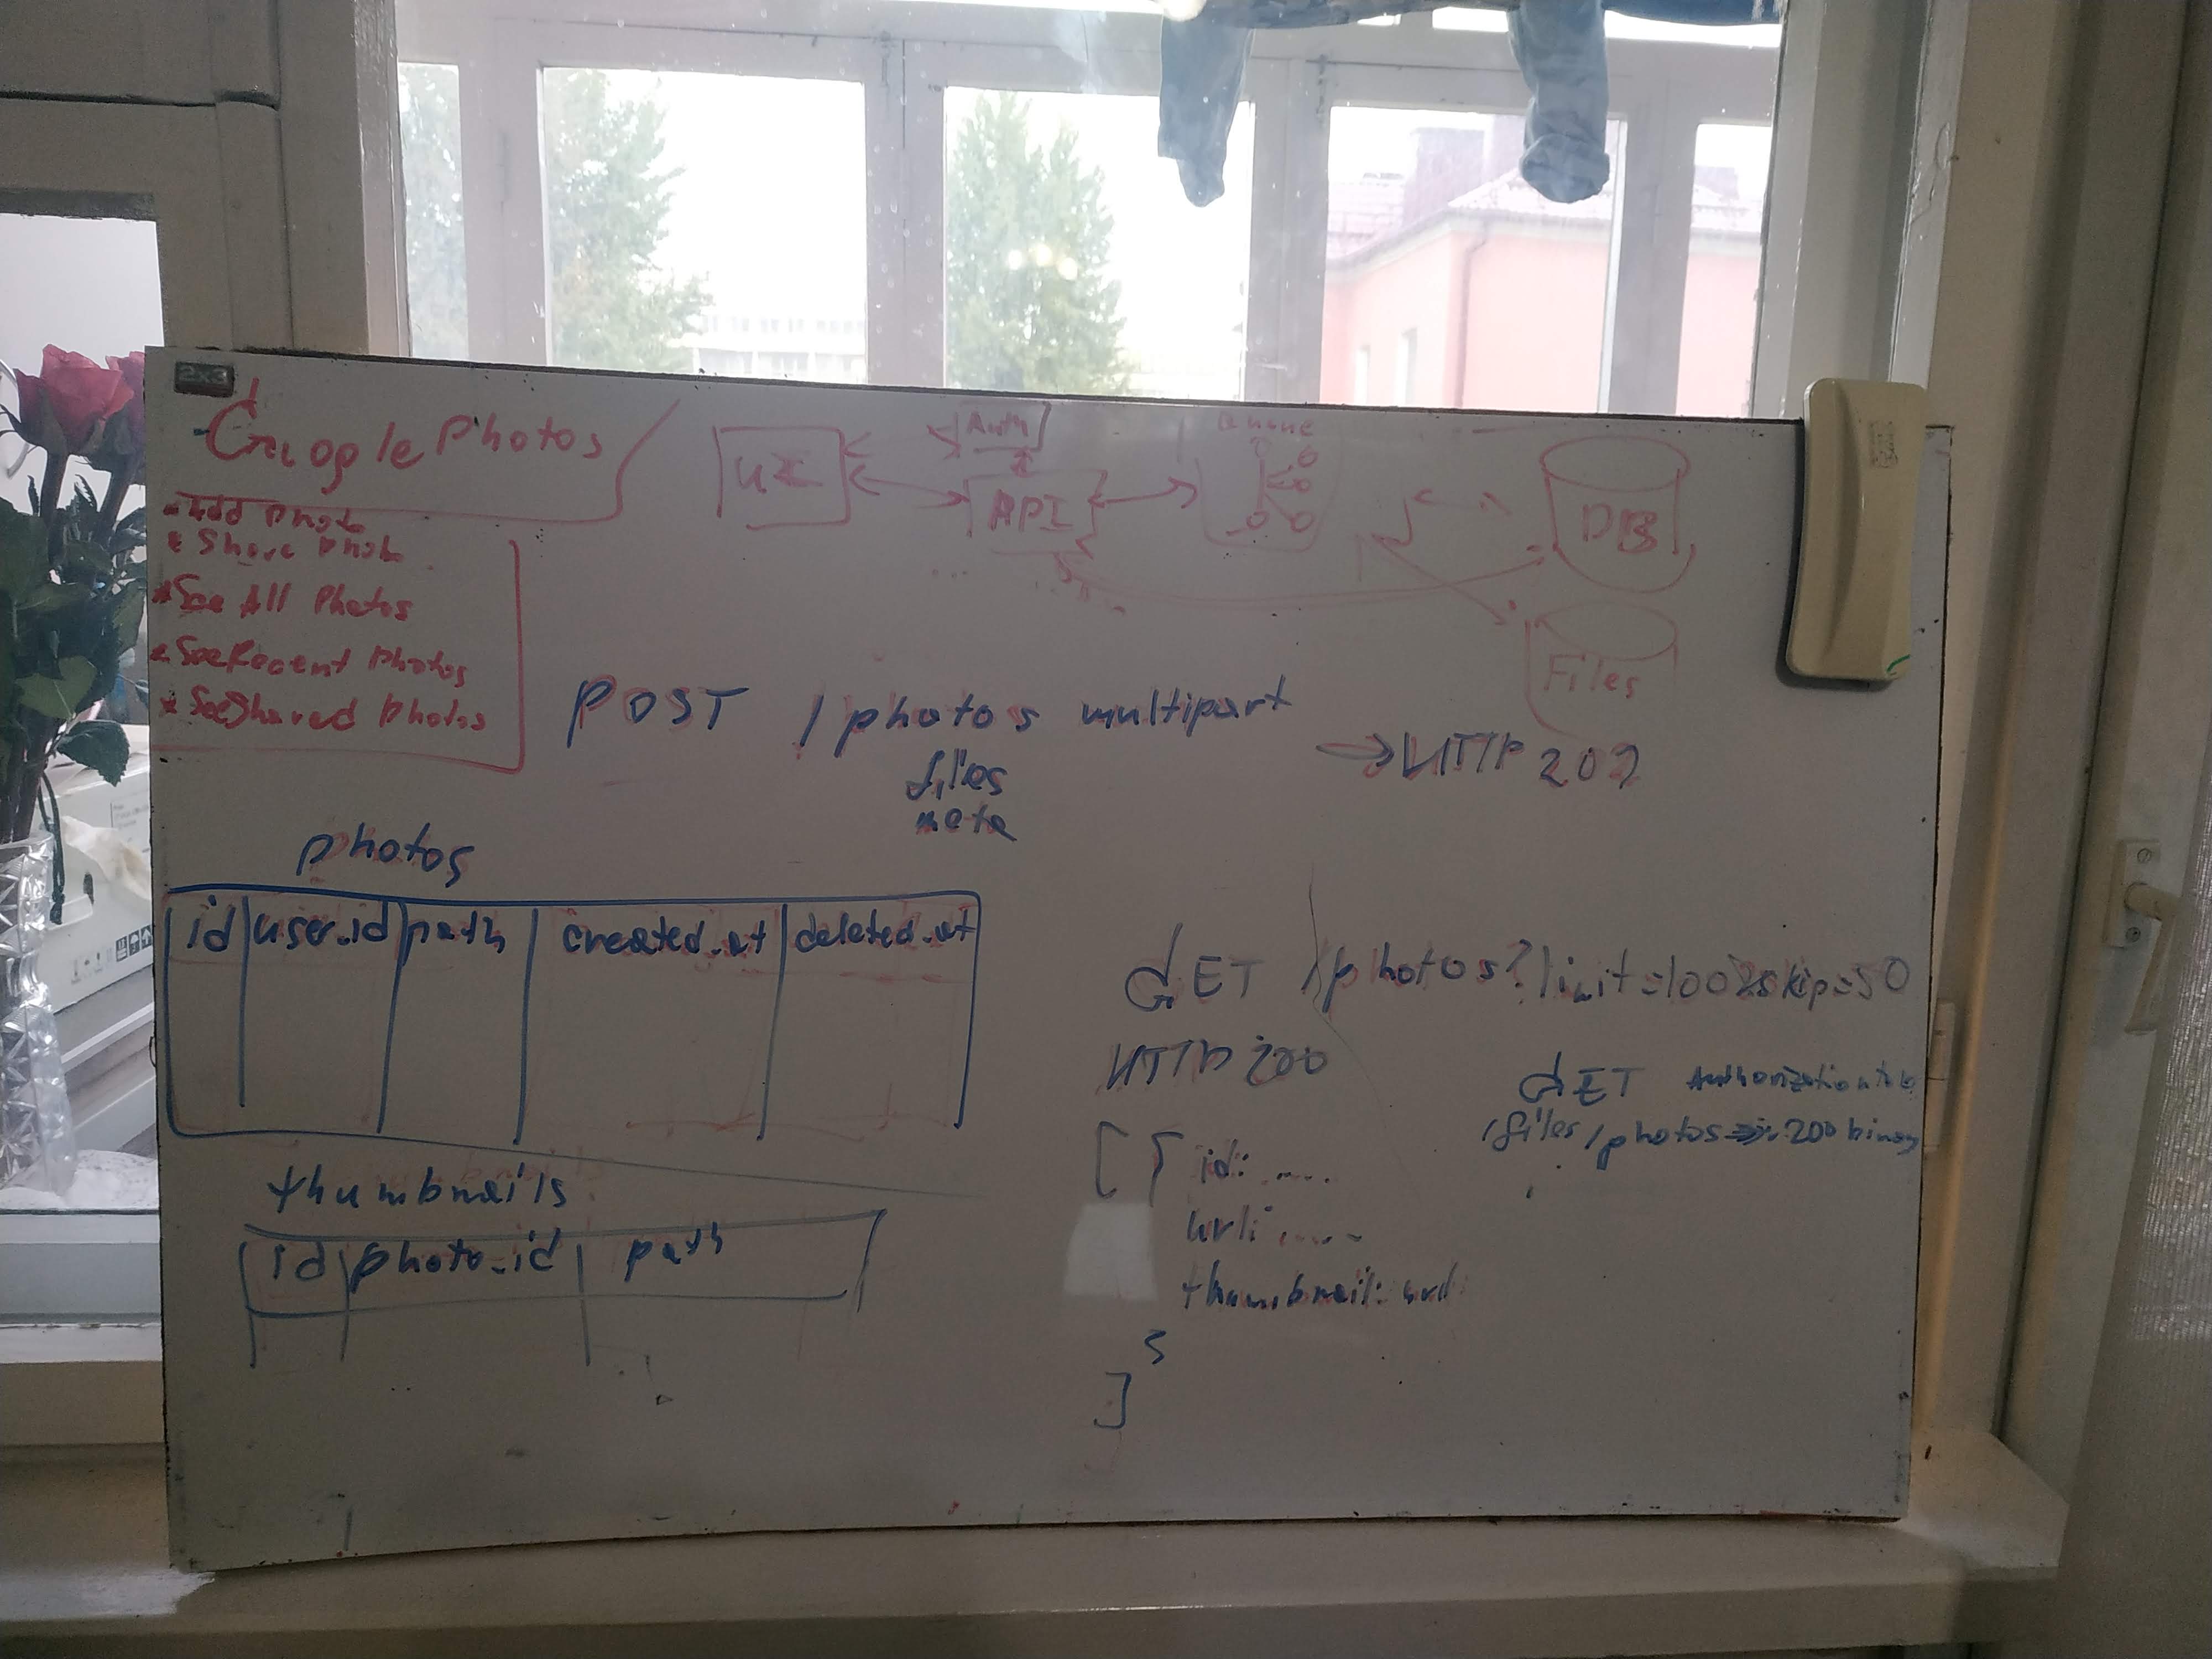 2x3
Google Photos
Add Photo
Share Photo
See All Photos
See Recent Photos
See Shared Photos
UI
Auth
API
Queue
DB
Files
POST /photos multipart
files
meta
HTTP 202
photos
id user_id path created_at deleted_at
thumbnails
id photo_id path
GET /photos?limit=100&skip=50
HTTP 200
[ { id: ....
url: ....
thumbnail: url
}
]
GET
/files/photos 200 binary